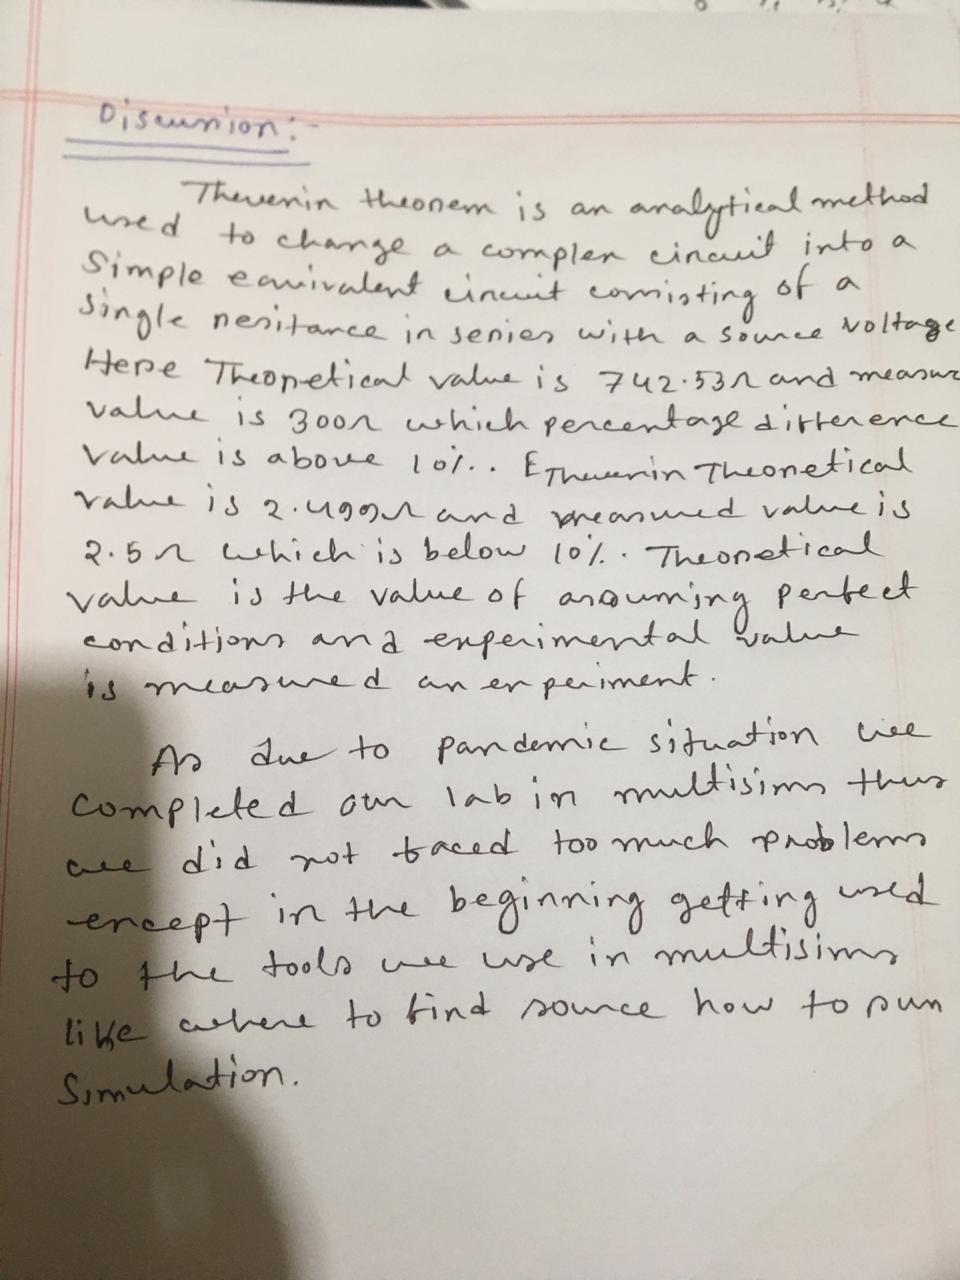 Discussion:-
Thevenin theorem is an analytical method
used to change a complex circuit into a
Simple equivalent circuit consisting of a
single resitance in series with a source voltage
Here Theoretical value is 742.53Ω and measur
value is 300Ω which percentage difference
value is above 10%. EThevenin Theoretical
value is 2.499Ω and measured value is
2.5Ω which is below 10%. Theoretical
value is the value of assuming perfect
conditions and experimental value
is measured an experiment.
As due to pandemic situation we
completed our lab in multisims thus
we did not faced too much problems
except in the beginning getting used
to the tools we use in multisims
like where to find source how to run
Simulation.